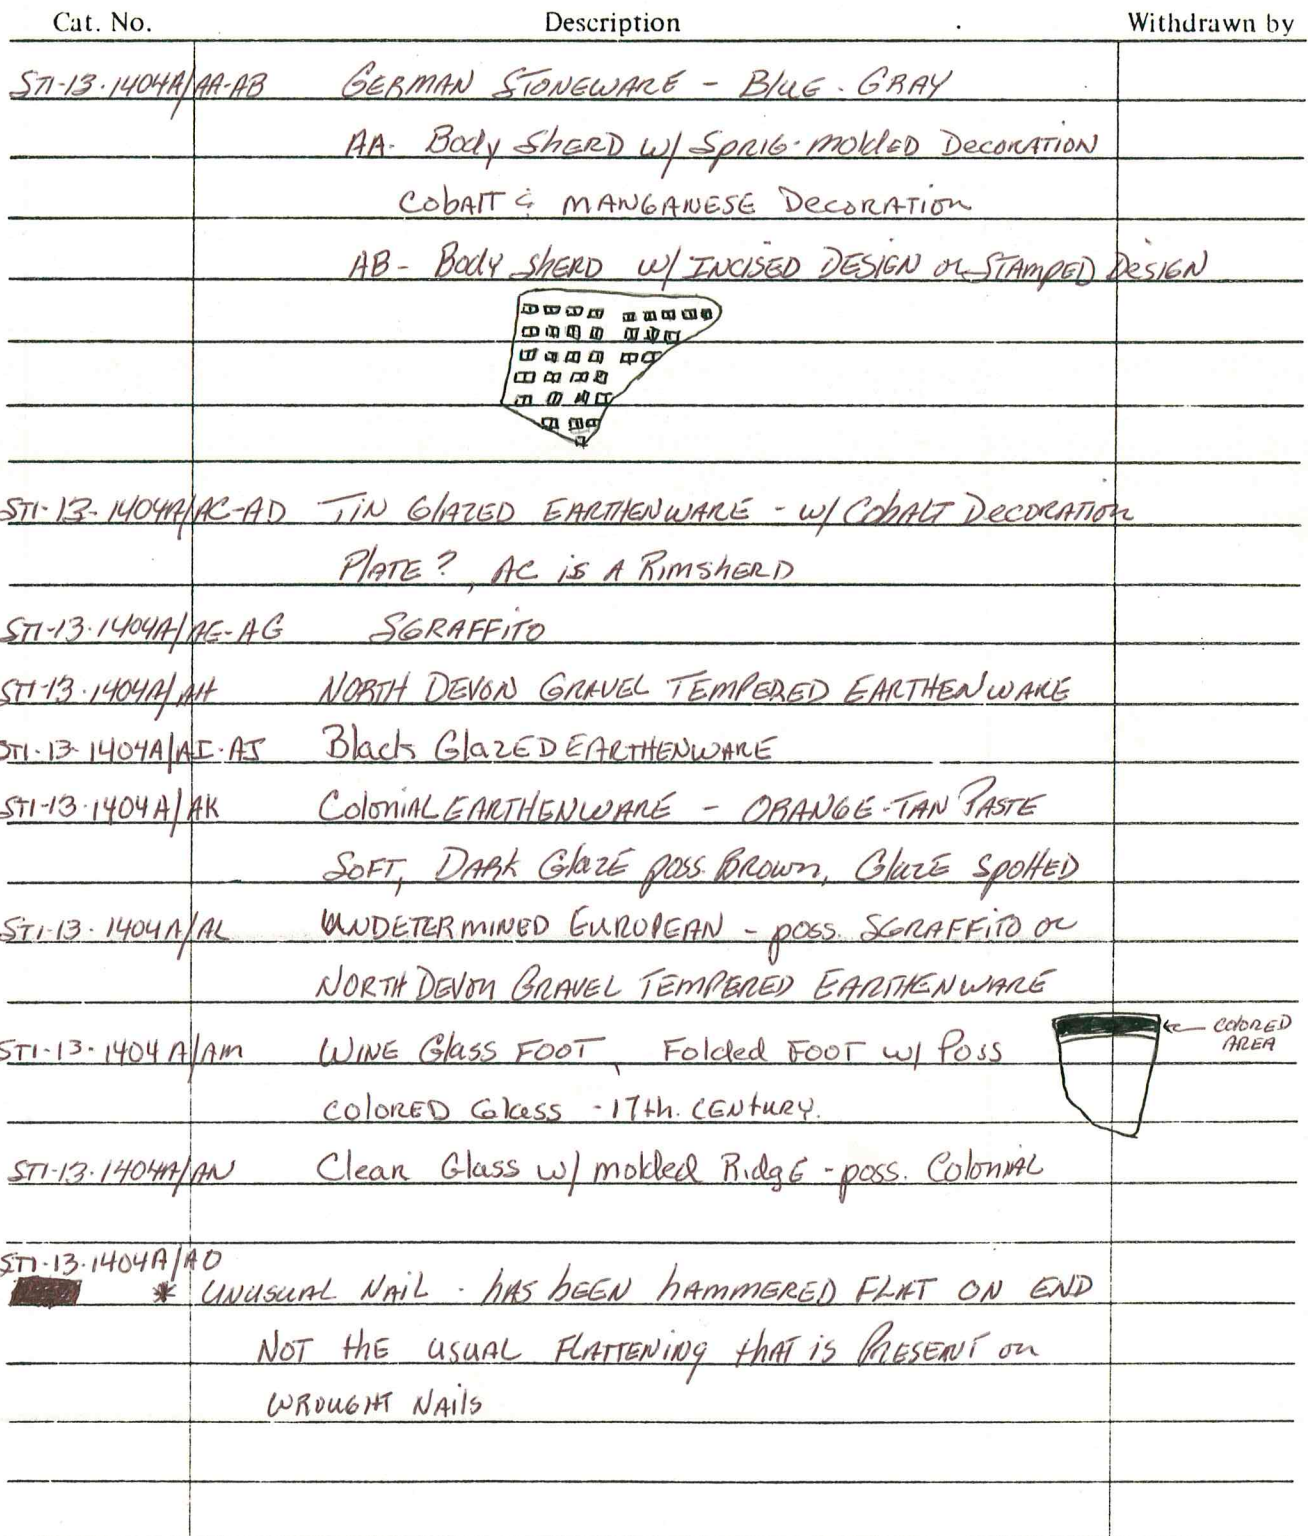 Cat. No. Description Withdrawn by
ST1-13-1404A/AA-AB GERMAN STONEWARE - Blue-GRAY
AA- Body SHERD w/ Sprig-molded Decoration
Cobalt & MANGANESE Decoration
AB- Body sherd w/ INCISED DESIGN or STAMPED DESIGN
ST1-13-1404A/AC-AD TIN GLAZED EARTHENWARE - w/ Cobalt Decoration
Plate?, AC is A Rimsherd
ST1-13-1404A/AE-AG SGRAFFITO
ST1-13-1404A/AH NORTH DEVON GRAVEL TEMPERED EARTHENWARE
ST1-13-1404A/AI-AJ Black GlazED EARTHENWARE
ST1-13-1404A/AK Colonial EARTHENWARE - ORANGE-TAN PASTE
SOFT, DARK Glaze poss. Brown, Glaze Spotted
ST1-13-1404A/AL UNDETERMINED EUROPEAN - poss. SGRAFFITO or
NORTH DEVON GRAVEL TEMPERED EARTHENWARE
ST1-13-1404A/AM WINE Glass FOOT, Folded FOOT w/ Poss ← COLORED
AREA
COLORED Glass - 17th. CENTURY.
ST1-13-1404A/AN Clear Glass w/ molded Ridge - poss. Colonial
ST1-13-1404A/AO
* UNUSUAL NAIL - has been hammered FLAT ON END
NOT the usual FLATTENING that is PRESENT on
WROUGHT NAils